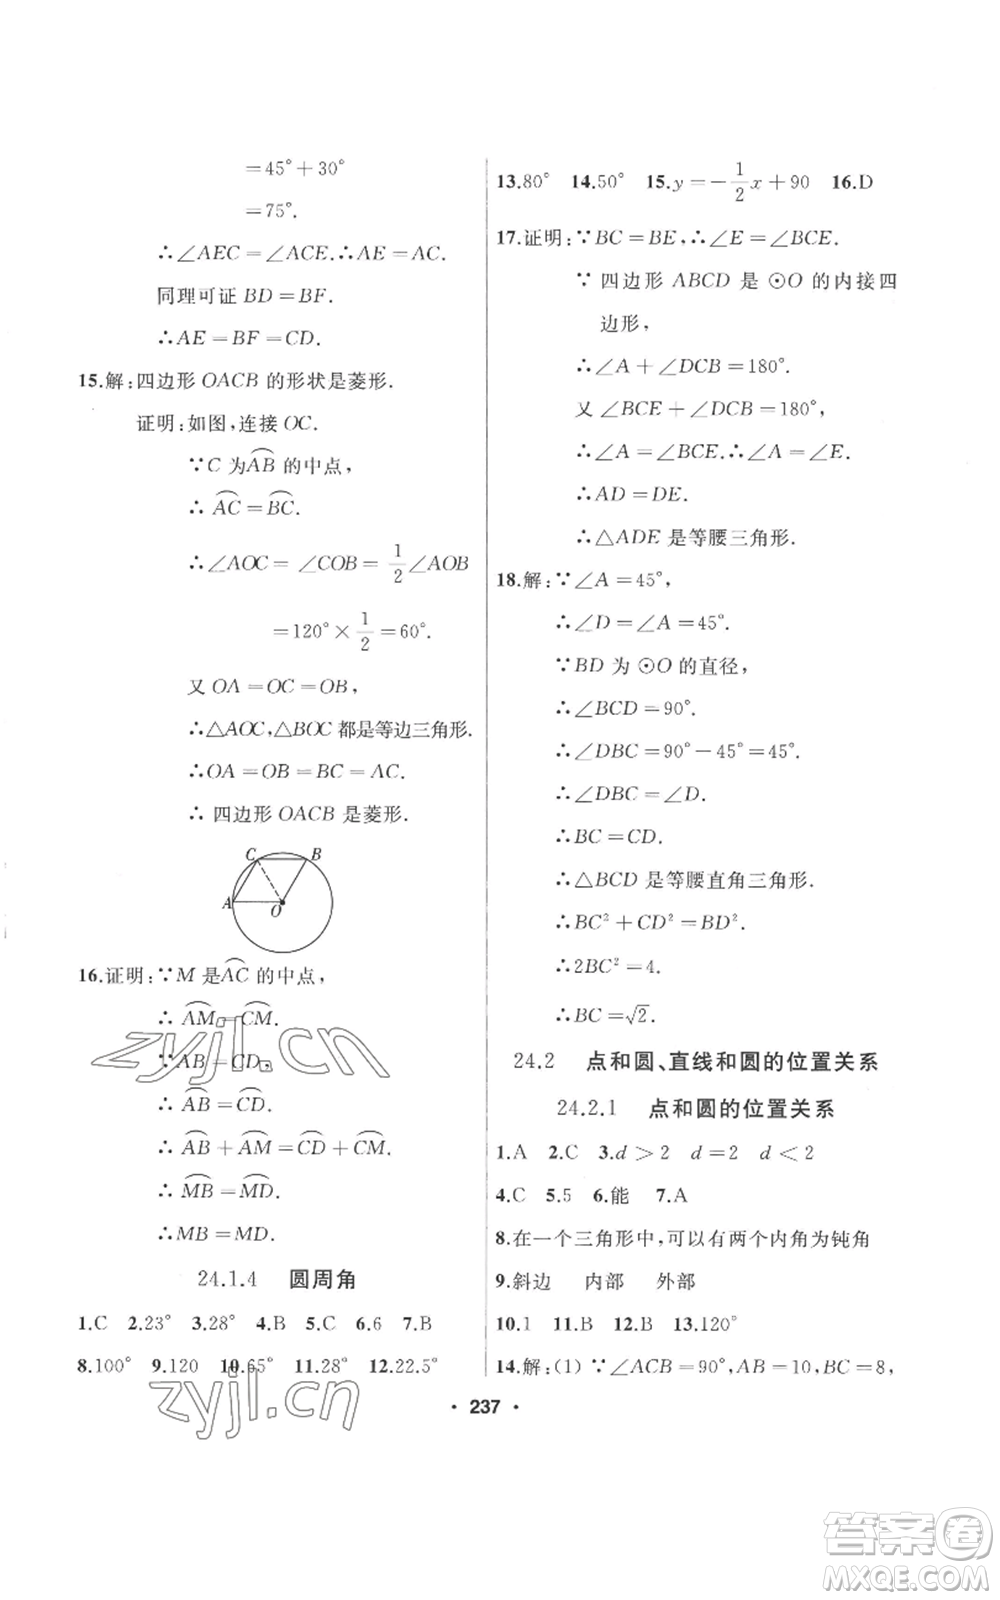 =45°+30°
=75°.
∴∠AEC=∠ACE.∴AE=AC.
同理可证 BD=BF.
∴AE=BF=CD.
15.解:四边形 OACB 的形状是菱形.
证明:如图,连接 OC.
∵C 为⌒AB 的中点,
∴⌒AC=⌒BC.
∴∠AOC=∠COB=1/2∠AOB
=120°×1/2=60°.
又 OA=OC=OB,
∴△AOC,△BOC 都是等边三角形.
∴OA=OB=BC=AC.
∴ 四边形 OACB 是菱形.
C B
A O
16.证明:∵M 是⌒AC 的中点,
∴⌒AM=⌒CM.
∵AB=CD,
∴⌒AB=⌒CD.
∴⌒AB+⌒AM=⌒CD+⌒CM.
∴⌒MB=⌒MD.
∴MB=MD.
24.1.4 圆周角
1.C 2.23° 3.28° 4.B 5.C 6.6 7.B
8.100° 9.120 10.65° 11.28° 12.22.5°
13.80° 14.50° 15.y=-1/2x+90 16.D
17.证明:∵BC=BE,∴∠E=∠BCE.
∵ 四边形 ABCD 是 ⊙O 的内接四
边形,
∴∠A+∠DCB=180°.
又 ∠BCE+∠DCB=180°,
∴∠A=∠BCE.∴∠A=∠E.
∴AD=DE.
∴△ADE 是等腰三角形.
18.解:∵∠A=45°,
∴∠D=∠A=45°.
∵BD 为 ⊙O 的直径,
∴∠BCD=90°.
∴∠DBC=90°-45°=45°.
∴∠DBC=∠D.
∴BC=CD.
∴△BCD 是等腰直角三角形.
∴BC²+CD²=BD².
∴2BC²=4.
∴BC=√2.
24.2 点和圆、直线和圆的位置关系
24.2.1 点和圆的位置关系
1.A 2.C 3.d>2 d=2 d<2
4.C 5.5 6.能 7.A
8.在一个三角形中,可以有两个内角为钝角
9.斜边 内部 外部
10.1 11.B 12.B 13.120°
14.解:(1) ∵∠ACB=90°,AB=10,BC=8,
• 237 •
zyjl.cn
zyjl.cn
答案圈
MXQE.COM